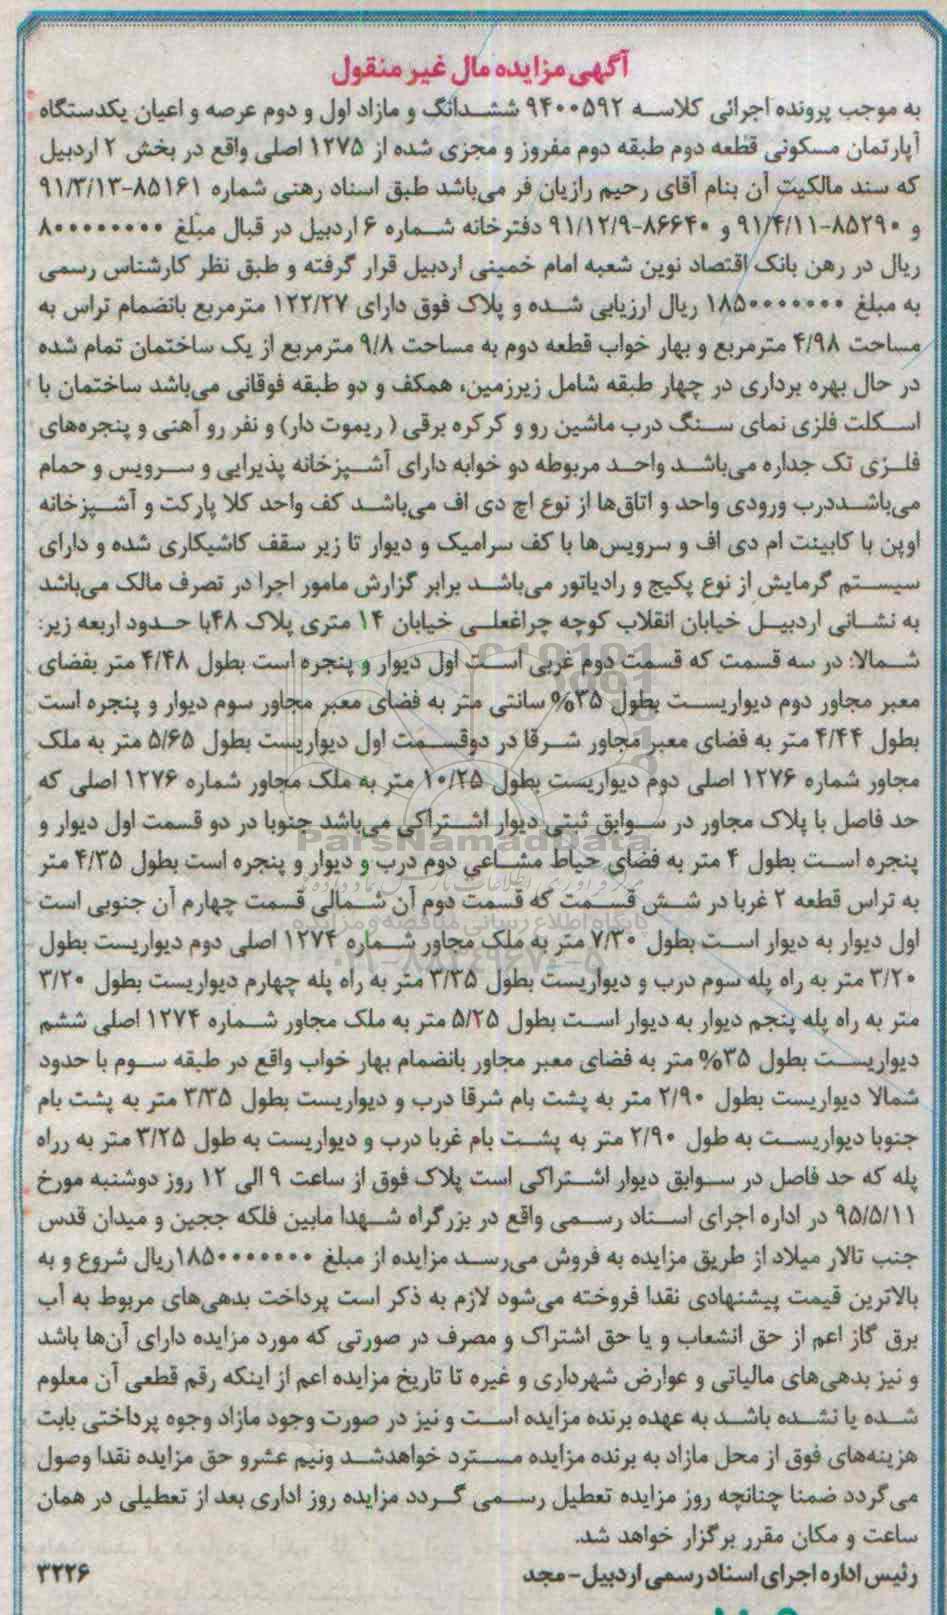 آگهی مزایده مال غیر منقول
به موجب پرونده اجرائی کلاسه ۹۴۰۰۵۹۲ ششدانگ و مازاد اول و دوم عرصه و اعیان یکدستگاه
آپارتمان مسکونی قطعه دوم طبقه دوم مفروز و مجزی شده از ۱۲۷۵ اصلی واقع در بخش ۲ اردبیل
که سند مالکیت آن بنام آقای رحیم رازیان فر می‌باشد طبق اسناد رهنی شماره ۸۵۱۶۱-۹۱/۳/۱۳
و ۸۵۲۹۰-۹۱/۴/۱۱ و ۸۶۶۴۰-۹۱/۱۲/۹ دفترخانه شماره ۶ اردبیل در قبال مبلغ ۸۰۰۰۰۰۰۰۰
ریال در رهن بانک اقتصاد نوین شعبه امام خمینی اردبیل قرار گرفته و طبق نظر کارشناس رسمی
به مبلغ ۱۸۵۰۰۰۰۰۰۰ ریال ارزیابی شده و پلاک فوق دارای ۱۲۲/۲۷ مترمربع بانضمام تراس به
مساحت ۴/۹۸ مترمربع و بهار خواب قطعه دوم به مساحت ۹/۸ مترمربع از یک ساختمان تمام شده
در حال بهره برداری در چهار طبقه شامل زیرزمین، همکف و دو طبقه فوقانی می‌باشد ساختمان با
اسکلت فلزی نمای سنگ درب ماشین رو و کرکره برقی ( ریموت دار) و نفر رو آهنی و پنجره‌های
فلزی تک جداره می‌باشد واحد مربوطه دو خوابه دارای آشپزخانه پذیرایی و سرویس و حمام
می‌باشددرب ورودی واحد و اتاق‌ها از نوع اچ دی اف می‌باشد کف واحد کلا پارکت و آشپزخانه
اوپن با کابینت ام دی اف و سرویس‌ها با کف سرامیک و دیوار تا زیر سقف کاشیکاری شده و دارای
سیستم گرمایش از نوع پکیج و رادیاتور می‌باشد برابر گزارش مامور اجرا در تصرف مالک می‌باشد
به نشانی اردبیل خیابان انقلاب کوچه چراغعلی خیابان ۱۴ متری پلاک ۴۸با حدود اربعه زیر:
شمالا: در سه قسمت که قسمت دوم غربی است اول دیوار و پنجره است بطول ۴/۴۸ متر بفضای
معبر مجاور دوم دیواریست بطول ۳۵% سانتی متر به فضای معبر مجاور سوم دیوار و پنجره است
بطول ۴/۴۴ متر به فضای معبر مجاور شرقا در دوقسمت اول دیواریست بطول ۵/۶۵ متر به ملک
مجاور شماره ۱۲۷۶ اصلی دوم دیواریست بطول ۱۰/۲۵ متر به ملک مجاور شماره ۱۲۷۶ اصلی که
حد فاصل با پلاک مجاور در سوابق ثبتی دیوار اشتراکی می‌باشد جنوبا در دو قسمت اول دیوار و
پنجره است بطول ۴ متر به فضای حیاط مشاعی دوم درب و دیوار و پنجره است بطول ۴/۳۵ متر
به تراس قطعه ۲ غربا در شش قسمت که قسمت دوم آن شمالی قسمت چهارم آن جنوبی است
اول دیوار به دیوار است بطول ۷/۳۰ متر به ملک مجاور شماره ۱۲۷۴ اصلی دوم دیواریست بطول
۳/۲۰ متر به راه پله سوم درب و دیواریست بطول ۳/۳۵ متر به راه پله چهارم دیواریست بطول ۳/۲۰
متر به راه پله پنجم دیوار به دیوار است بطول ۵/۲۵ متر به ملک مجاور شماره ۱۲۷۴ اصلی ششم
دیواریست بطول ۳۵% متر به فضای معبر مجاور بانضمام بهار خواب واقع در طبقه سوم با حدود
شمالا دیواریست بطول ۲/۹۰ متر به پشت بام شرقا درب و دیواریست بطول ۳/۳۵ متر به پشت بام
جنوبا دیواریست به طول ۲/۹۰ متر به پشت بام غربا درب و دیواریست به طول ۳/۲۵ متر به رراه
پله که حد فاصل در سوابق دیوار اشتراکی است پلاک فوق از ساعت ۹ الی ۱۲ روز دوشنبه مورخ
۹۵/۵/۱۱ در اداره اجرای اسناد رسمی واقع در بزرگراه شهدا مابین فلکه ججین و میدان قدس
جنب تالار میلاد از طریق مزایده به فروش می‌رسد مزایده از مبلغ ۱۸۵۰۰۰۰۰۰۰ریال شروع و به
بالاترین قیمت پیشنهادی نقدا فروخته می‌شود لازم به ذکر است پرداخت بدهی‌های مربوط به آب
برق گاز اعم از حق انشعاب و یا حق اشتراک و مصرف در صورتی که مورد مزایده دارای آن‌ها باشد
و نیز بدهی‌های مالیاتی و عوارض شهرداری و غیره تا تاریخ مزایده اعم از اینکه رقم قطعی آن معلوم
شده یا نشده باشد به عهده برنده مزایده است و نیز در صورت وجود مازاد وجوه پرداختی بابت
هزینه‌های فوق از محل مازاد به برنده مزایده مسترد خواهدشد ونیم عشرو حق مزایده نقدا وصول
می‌گردد ضمنا چنانچه روز مزایده تعطیل رسمی گردد مزایده روز اداری بعد از تعطیلی در همان
ساعت و مکان مقرر برگزار خواهد شد.
رئیس اداره اجرای اسناد رسمی اردبیل-مجد
۳۲۲۶
ParsNamadData
پایگاه اطلاع رسانی مناقصه و مزایده